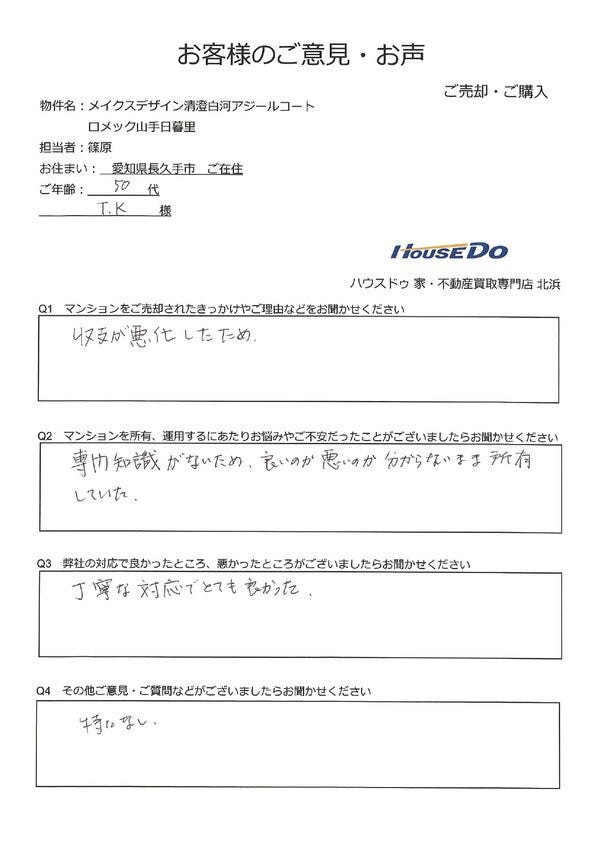 お客様のご意見・お声
ご売却・ご購入
物件名：メイクスデザイン清澄白河アジールコート
ロメック山手日暮里
担当者：篠原
お住まい： 愛知県長久手市 ご在住
ご年齢： 50 代
T.K 様
HOUSEDO
ハウスドゥ 家・不動産買取専門店 北浜
Q1 マンションをご売却されたきっかけやご理由などをお聞かせください
収支が悪化したため.
Q2 マンションを所有、運用するにあたりお悩みやご不安だったことがございましたらお聞かせください
専門知識がないため、良いのか悪いのか分からないまま所有
していた.
Q3 弊社の対応で良かったところ、悪かったところがございましたらお聞かせください
丁寧な対応でとても良かった.
Q4 その他ご意見・ご質問などがございましたらお聞かせください
特になし.